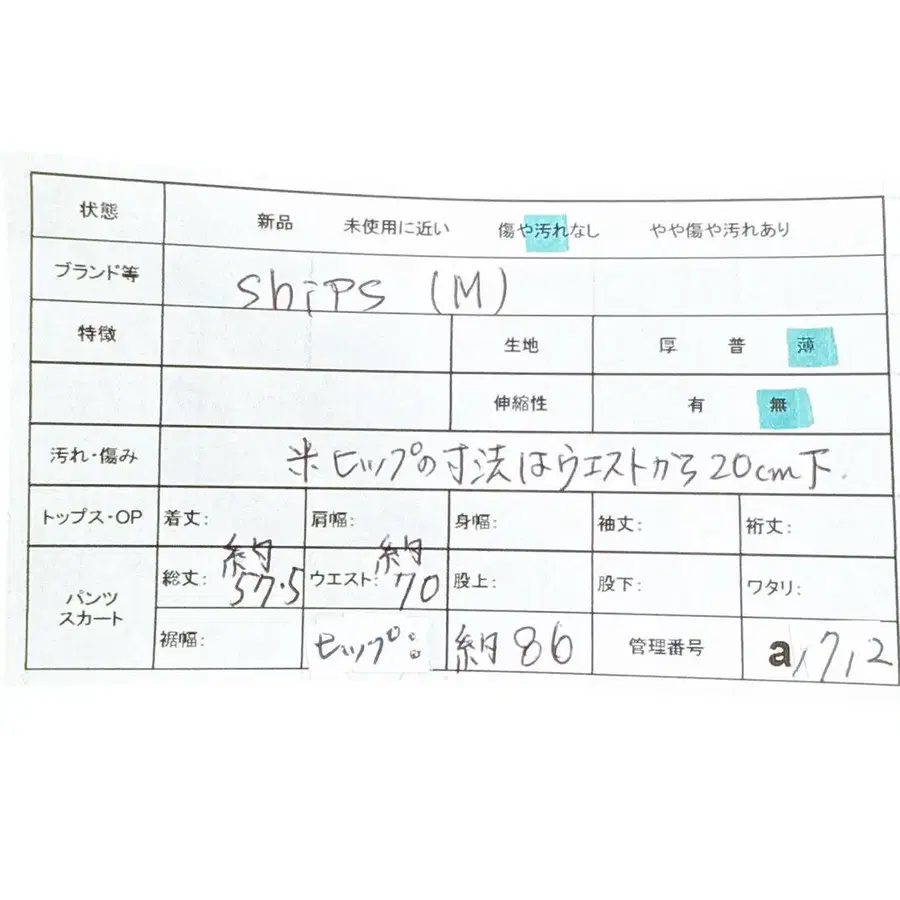 状態 新品 未使用に近い 傷や汚れなし やや傷や汚れあり
ブランド等 ships (M)
特徴 生地 厚 普 薄
伸縮性 有 無
汚れ・傷み ※ヒップの寸法はウエストから20cm下.
トップス・OP 着丈: 肩幅: 身幅: 袖丈: 裄丈:
パンツ スカート 総丈: 約57.5 ウエスト: 約70 股上: 股下: ワタリ:
裾幅: ヒップ: 約86 管理番号 a1712